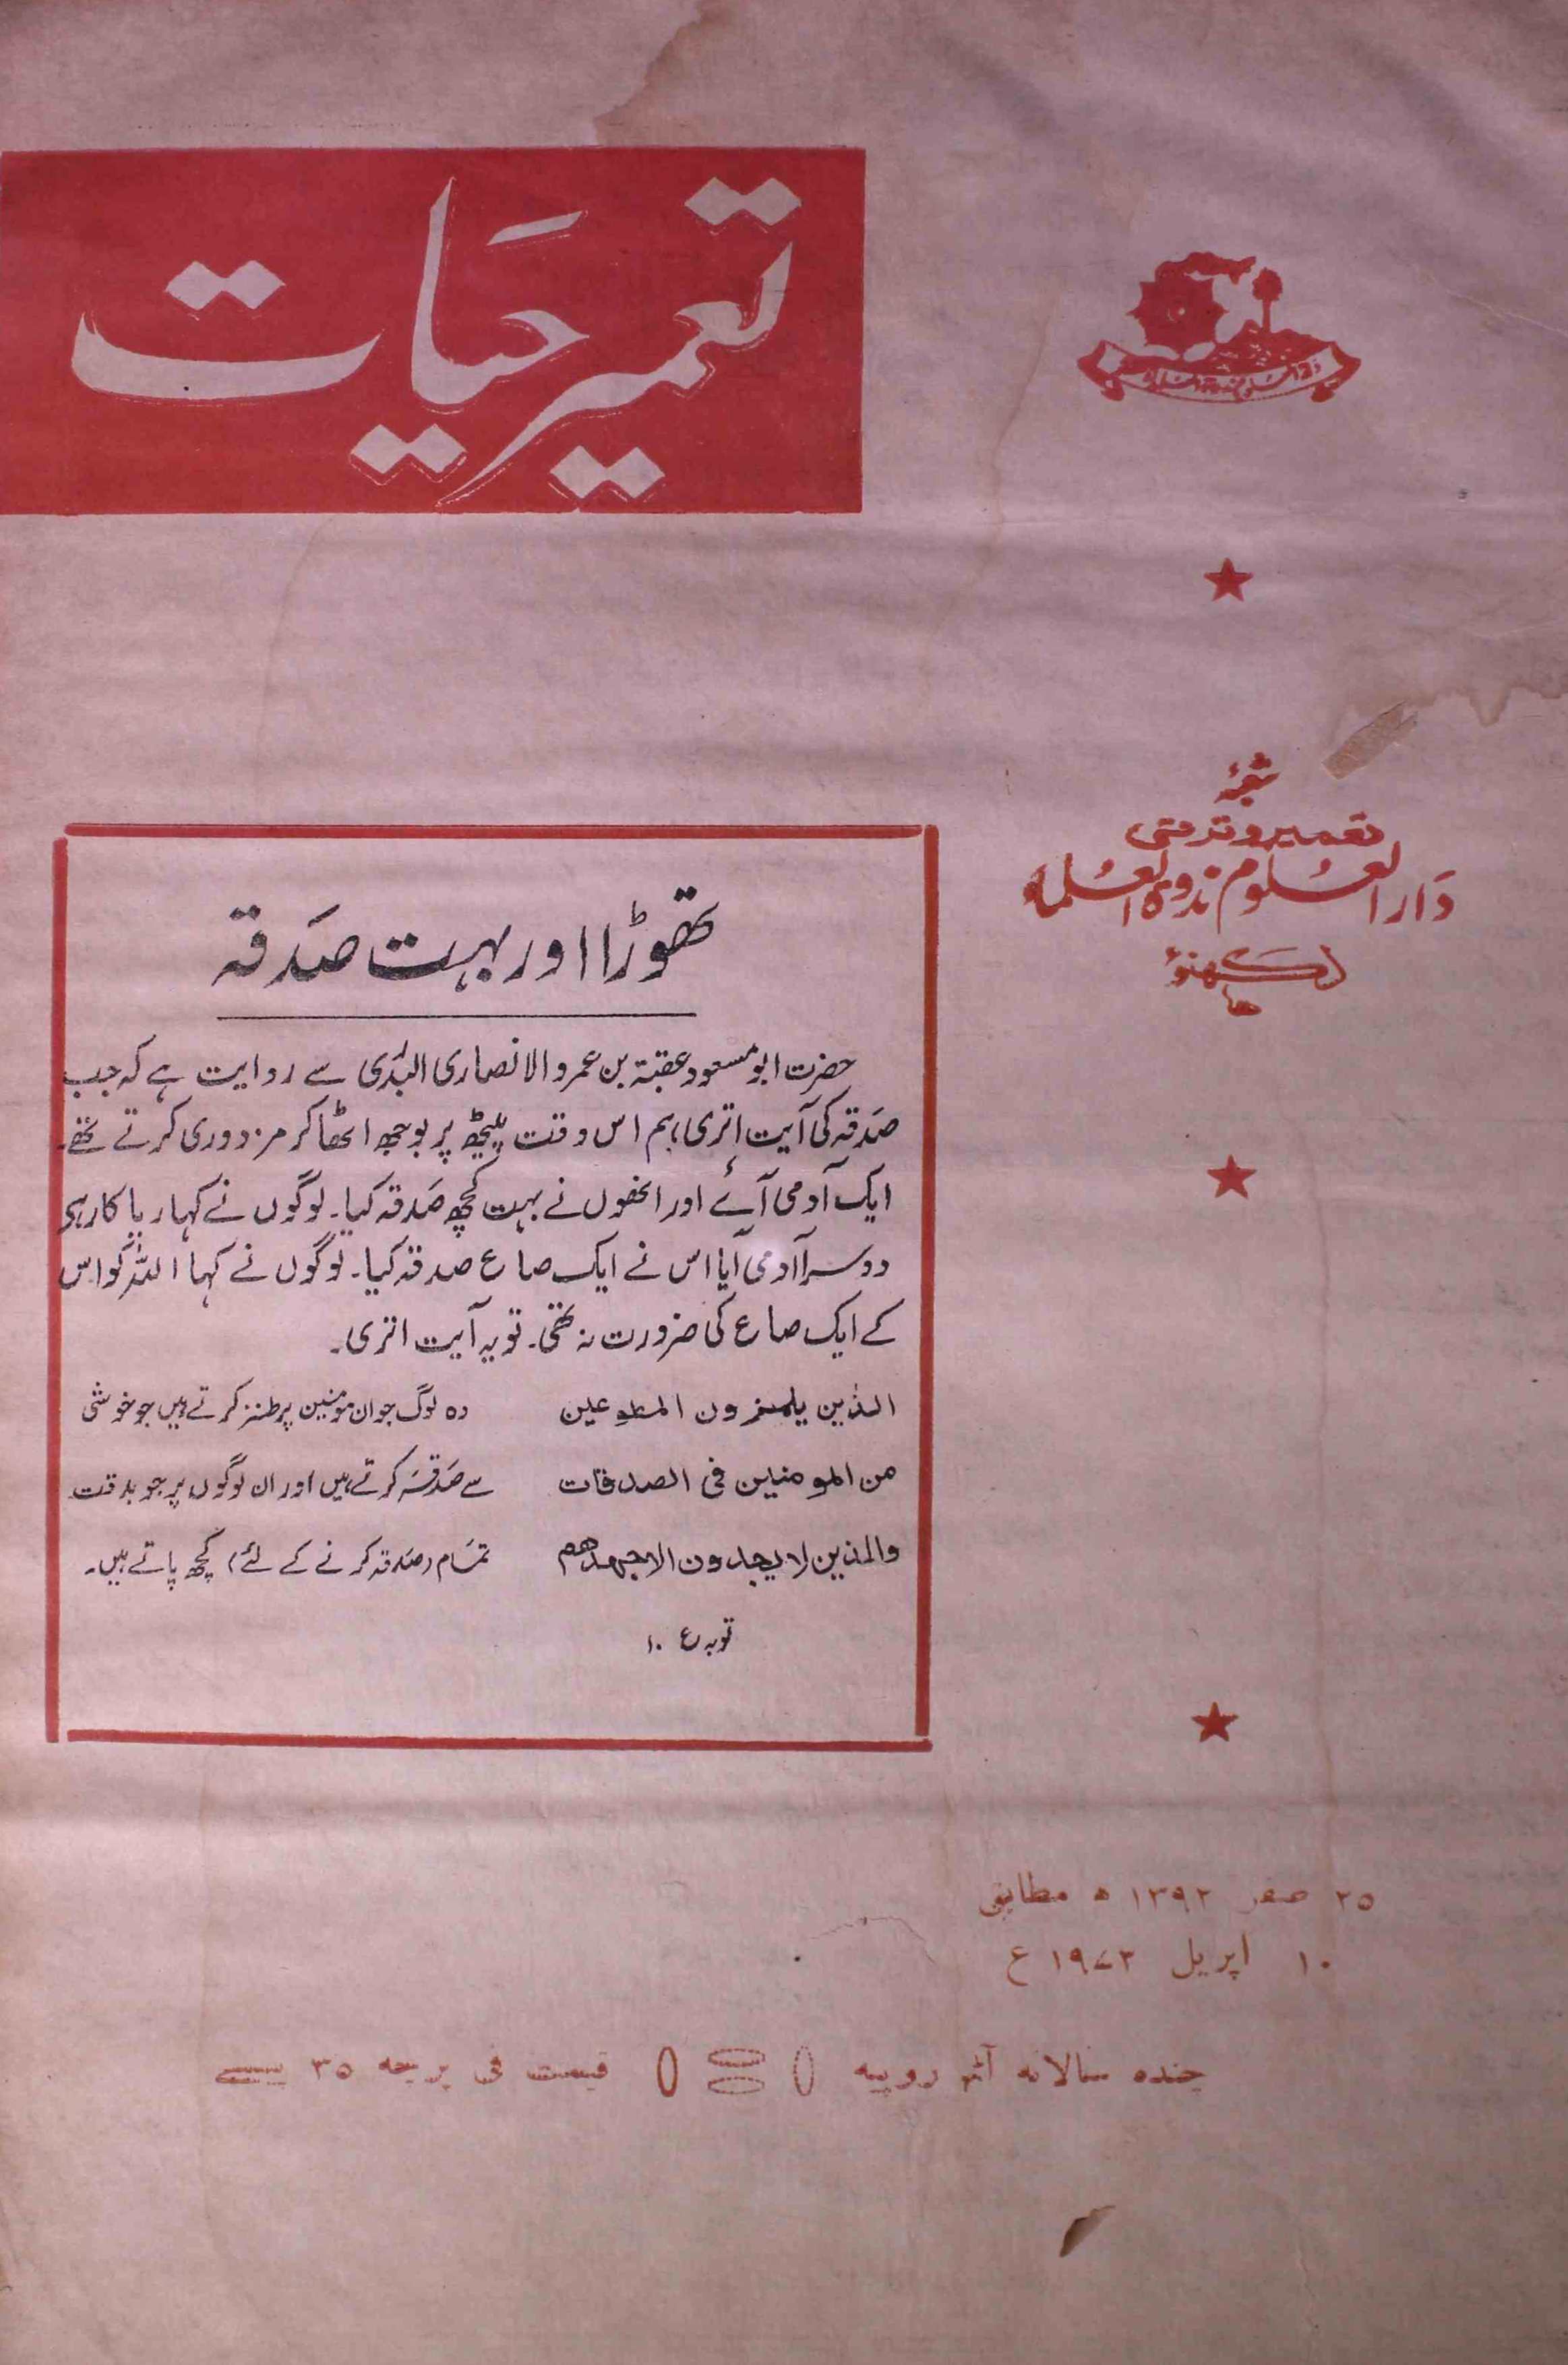 تعمیر حیات
دارالعلوم ندوۃ العلماء
شعبۂ
تعمیر و ترقی
دَارالعُلوم ندوۃ العُلماء
لکھنؤ
تھوڑا اور بہت صَدقہ
حضرت ابو مسعود عقبۃ بن عمرو الانصاری البدری سے روایت ہے کہ جب
صَدقہ کی آیت اتری، ہم اس وقت پیٹھ پر بوجھ اٹھا کر مزدوری کرتے تھے۔
ایک آدمی آئے اور انھوں نے بہت کچھ صَدقہ کیا۔ لوگوں نے کہا ریا کار ہی
دوسرا آدمی آیا اس نے ایک صاع صدقہ کیا۔ لوگوں نے کہا اللہ کو اس
کے ایک صاع کی ضرورت نہ تھی۔ تو یہ آیت اتری۔
الذین یلمزون المطوعین
من المومنین فی الصدقات
والذین لا یجدون الا جھدھم
توبہ ع ۱۰
وہ لوگ جو ان مومنین پر طنز کرتے ہیں جو خوشی
سے صَدقہ کرتے ہیں اور ان لوگوں پر جو بدقت
تمَام (صَدقہ کرنے کے لئے) کچھ پاتے ہیں۔
۲۵ صفر ۱۳۹۲ ھ مطابق
۱۰ اپریل ۱۹۷۲ ع
چندہ سالانہ آٹھ روپیہ قیمت فی پرچہ ۳۵ پیسے